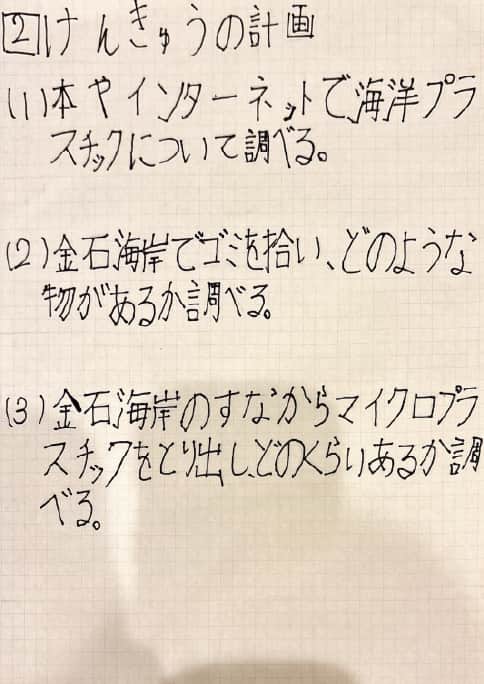 2 けんきゅうの計画
(1)本やインターネットで海洋プラ
スチックについて調べる。
(2)金石海岸でゴミを拾い、どのような
物があるか調べる。
(3)金石海岸のすなからマイクロプラ
スチックをとり出し、どのくらいあるか調
べる。